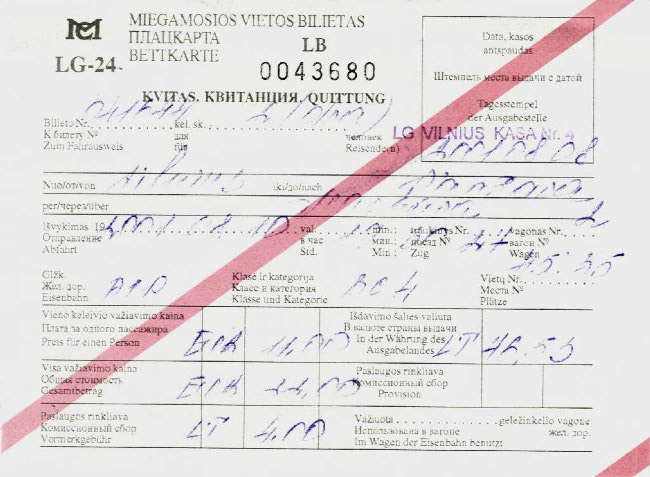 MC
MIEGAMOSIOS VIETOS BILIETAS
ПЛАЦКАРТА
BETTKARTE
LB
LG-24
0043680
KVITAS. КВИТАНЦИЯ. QUITTUNG
Data, kasos
antspaudas
Штемпель места выдачи с датой
Tagesstempel
der Ausgabestelle
LG VILNIUS KASA Nr. 4
2001 08 08
Bilieto Nr. kel. sk. 2
К билету № для человек
Zum Fahrausweis für Reisende(n)
Nuo/от/von Vilnius iki/до/nach
per/через/über
Išvykimas 19 2001.08.10 val. min.: traukinys Nr. vagonas Nr. 2
Отправление в час мин.: поезд № вагон №
Abfahrt Std. Min: Zug Wagen
Gižk. Klasė ir kategorija Vietų Nr.
Жел. дор. Класс и категория Места №
Eisenbahn Klasse und Kategorie Plätze
Vieno keleivio važiavimo kaina
Плата за одного пассажира
Preis für einen Person
EUR 11,00
Išdavimo šalies valiuta
В валюте страны выдачи
In der Währung des
Ausgabelandes
LT
Visa važiavimo kaina
Общая стоимость
Gesamtbetrag
EUR 22,00
Paslaugos rinkliava
Комиссионный сбор
Provision
Paslaugos rinkliava
Комиссионный сбор
Vormerkgebühr
LT 4,00
Važiuota geležinkelio vagone
Использована в вагоне жел. дор.
Im Wagen der Eisenbahn benutzt